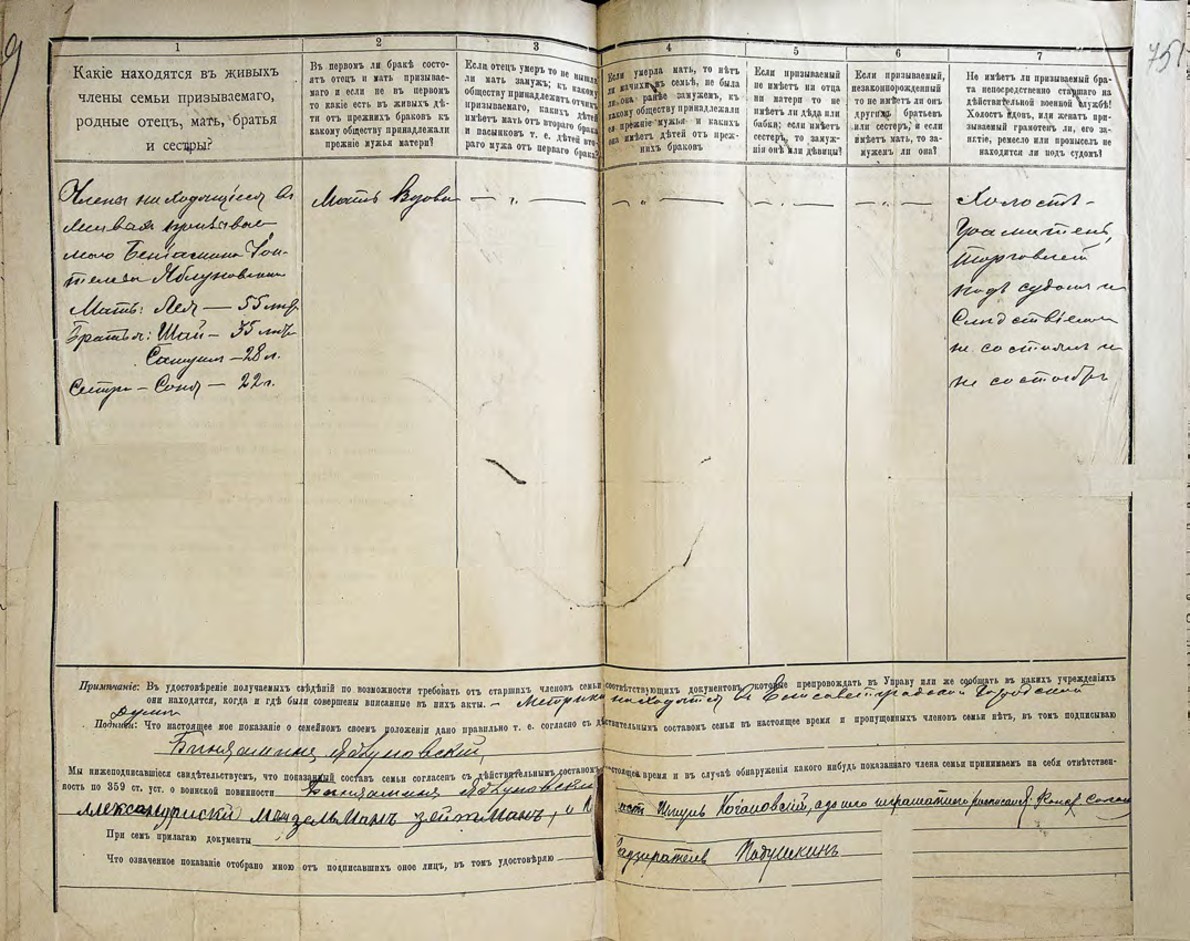 9
757
1
2
3
4
5
6
7
Какіе находятся въ живыхъ
члены семьи призываемаго,
родные отецъ, мать, братья
и сестры?
Въ первомъ ли бракѣ состо-
ятъ отецъ и мать призывае-
маго и если не въ первомъ
то какіе есть въ живыхъ дѣ-
ти отъ прежнихъ браковъ къ
какому обществу принадлежали
прежніе мужья матери?
Если отецъ умеръ то не вышла
ли мать замужъ; къ какому
обществу принадлежитъ отчимъ
призываемаго, какихъ дѣтей
имѣетъ мать отъ втораго брака
и пасынковъ т. е. дѣтей вто-
раго мужа отъ перваго брака?
Если умерла мать, то нѣтъ
ли мачихи въ семьѣ, не была
ли она ранѣе замужемъ, къ
какому обществу принадлежали
ея прежніе мужья и какихъ
она имѣетъ дѣтей отъ преж-
нихъ браковъ
Если призываемый
не имѣетъ ни отца
ни матери то не
имѣетъ ли дѣда или
бабки; если имѣетъ
сестеръ, то замуж-
нія онѣ или дѣвицы?
Если призываемый,
незаконнорожденный
то не имѣетъ ли онъ
другихъ братьевъ
или сестеръ, и если
имѣетъ мать, то за-
мужемъ ли она?
Не имѣетъ ли призываемый бра-
та непосредственно старшаго на
дѣйствительной военной службѣ?
Холостъ вдовъ, или женатъ при-
зываемый грамотенъ ли, его за-
нятіе, ремесло или промыселъ не
находится ли подъ судомъ?
Члены находящіеся въ
живыхъ призывае-
маго Беніамина
Яблуновскаго
Мать: Лея — 55 лѣтъ
Братья: Шая — 35 лѣтъ
Самуилъ — 28 л.
Сестра — Соня — 22 л.
Мать Вдова
— „ —
— „ —
— „ —
— „ —
Холостъ —
Грамотенъ,
торговлей
подъ судомъ и
Слѣдствіемъ
не состоялъ и
не состоитъ
Примѣчаніе: Въ удостовѣреніе получаемыхъ свѣдѣній по возможности требовать отъ старшихъ членовъ семьи соотвѣтствующихъ документовъ, которые препровождать въ Управу или же сообщать въ какихъ учрежденіяхъ
они находятся, когда и гдѣ были совершены вписанные въ нихъ акты. — Метрика находится въ Елисаветградской Городской
Думѣ
Подпись: Что настоящее мое показаніе о семейномъ своемъ положеніи дано правильно т. е. согласно съ дѣйствительнымъ составомъ семьи въ настоящее время и пропущенныхъ членовъ семьи нѣтъ, въ томъ подписываю
Биняминъ Яблуновскій,
Мы нижеподписавшіеся свидѣтельствуемъ, что показанный составъ семьи согласенъ съ дѣйствительнымъ составомъ настоящее время и въ случаѣ обнаруженія какого нибудь показаннаго члена семьи принимаемъ на себя отвѣтствен-
ность по 359 ст. уст. о воинской повинности Биняминя Яблуновскій
Александрійскій Мензельманъ Зейтманъ, и Коганoвскій, а за него неграмотнаго росписался
При семъ прилагаю документы
Что означенное показаніе отобрано мною отъ подписавшихъ оное лицъ, въ томъ удостовѣряю — Надзиратель Подушкинъ